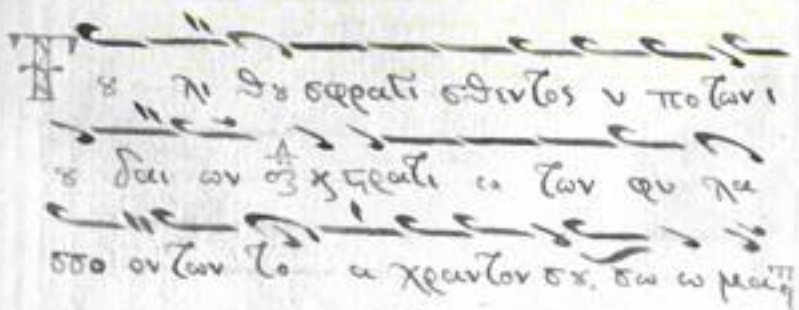 Τ ȣ λι θȣ σφρατι σθεντος υ πο των ι
ȣ δαι ων ϗ στρατι ω των φυ λα
σσο ον των το α χραντον σȣ σω ω μα